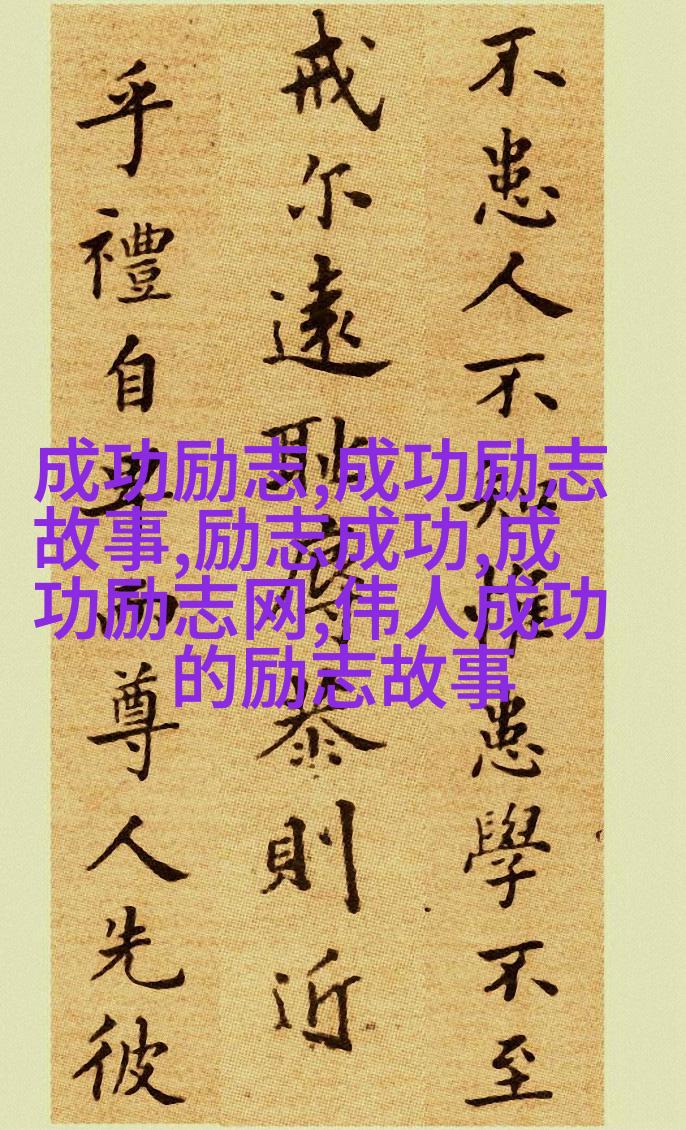 不患人不知惟患學不至
戒尔遠耻辱恭則近
乎禮自卑而尊人先彼
成功励志,成功励志
故事,励志成功,成
功励志网,伟人成功
的励志故事